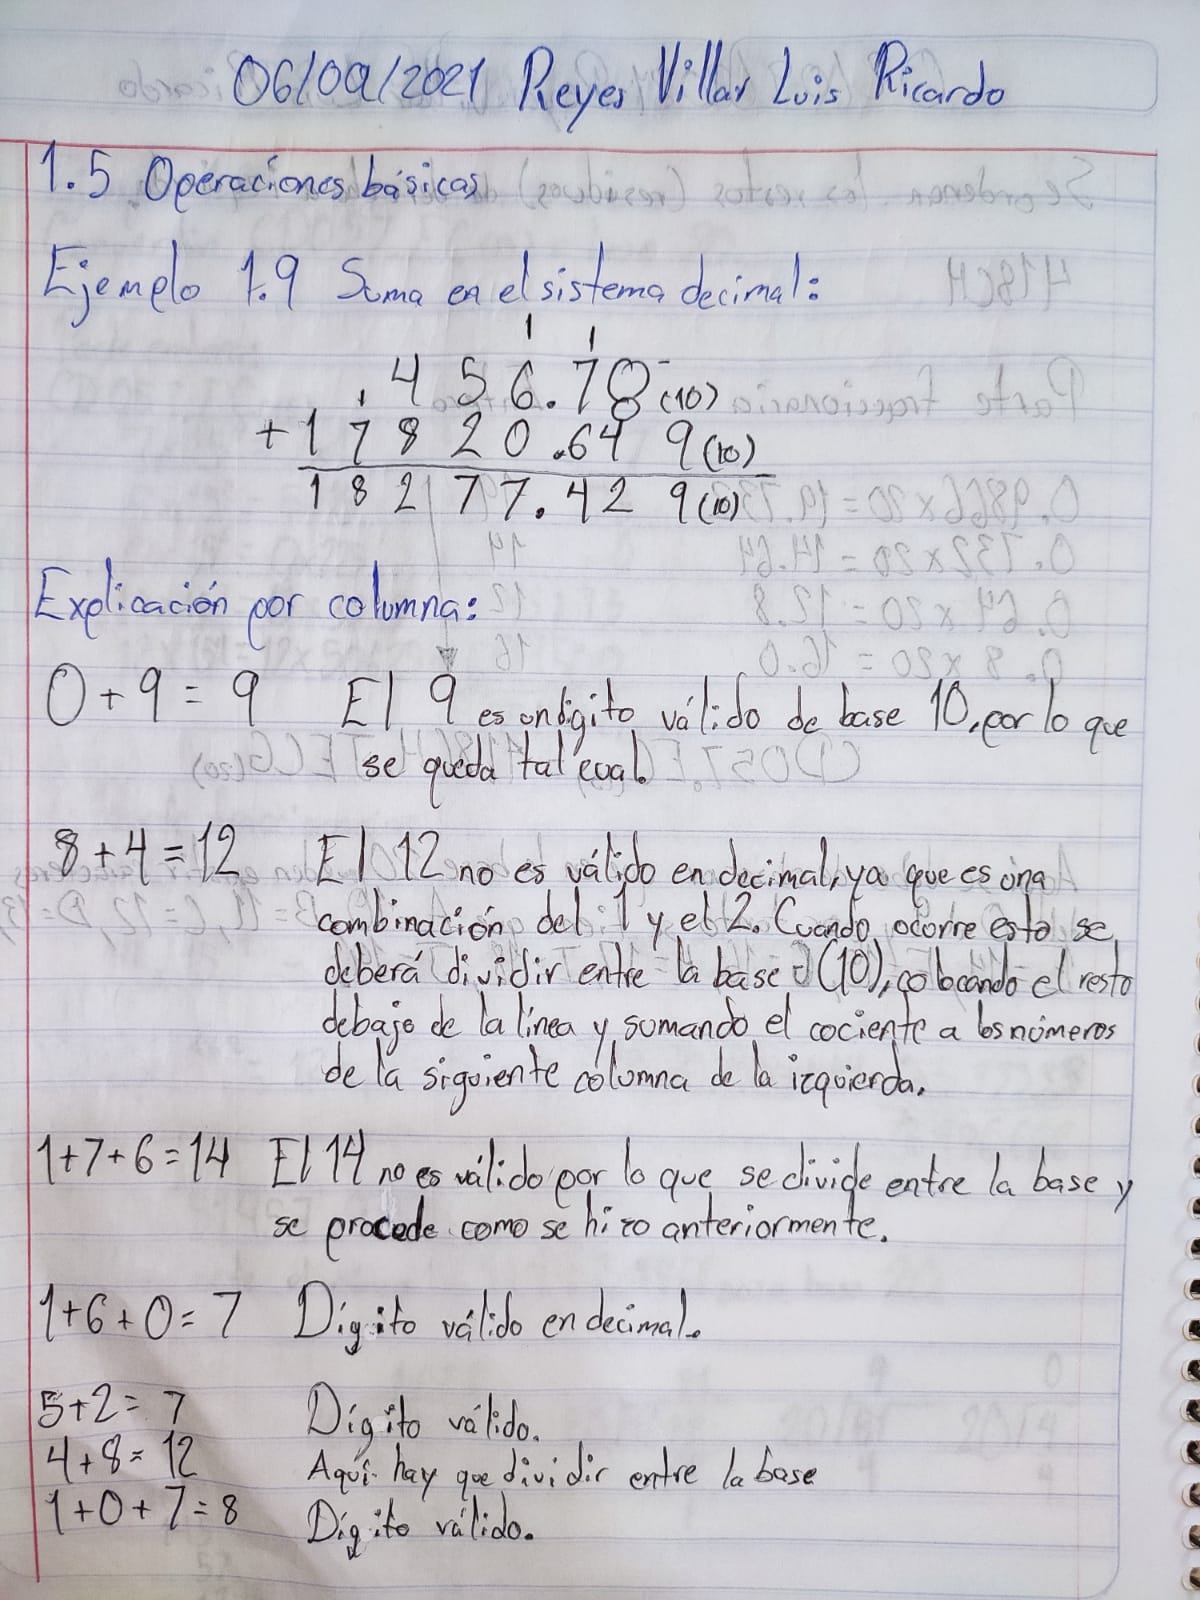 06/09/2021 Reyes Villar Luis Ricardo
1.5 Operaciones básicas
Ejemplo 1.9 Suma en el sistema decimal:
1 1
1 4 5 6.78 (10)
+1 7 8 2 0.64 9(10)
1 8 2 7 7.42 9(10)
Explicación por columna:
0+9=9 El 9 es un dígito válido de base 10, por lo que
se queda tal cual.
8+4=12 El 12 no es válido en decimal, ya que es una
combinación del 1 y el 2. Cuando ocurre esto se
deberá dividir entre la base (10), colocando el resto
debajo de la línea y sumando el cociente a los números
de la siguiente columna de la izquierda.
1+7+6=14 El 14 no es válido por lo que se divide entre la base y
se procede como se hizo anteriormente.
1+6+0=7 Dígito válido en decimal.
5+2=7 Dígito válido.
4+8=12 Aquí hay que dividir entre la base
1+0+7=8 Dígito válido.